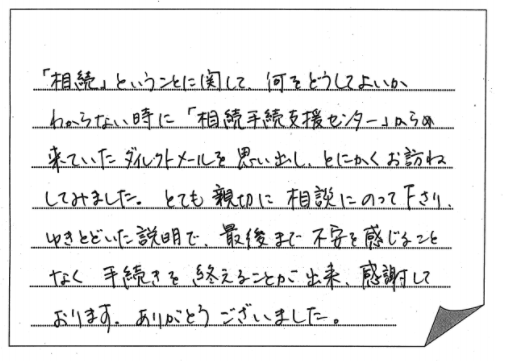 「相続」ということに関して、何をどうしてよいか
わからない時に「相続手続支援センター」からの
来ていたダイレクトメールを思い出し、とにかくお訪ね
してみました。とても親切に相談にのって下さり、
ゆきとどいた説明で、最後まで不安を感じること
なく手続きを終えることが出来、感謝して
おります。ありがとうございました。